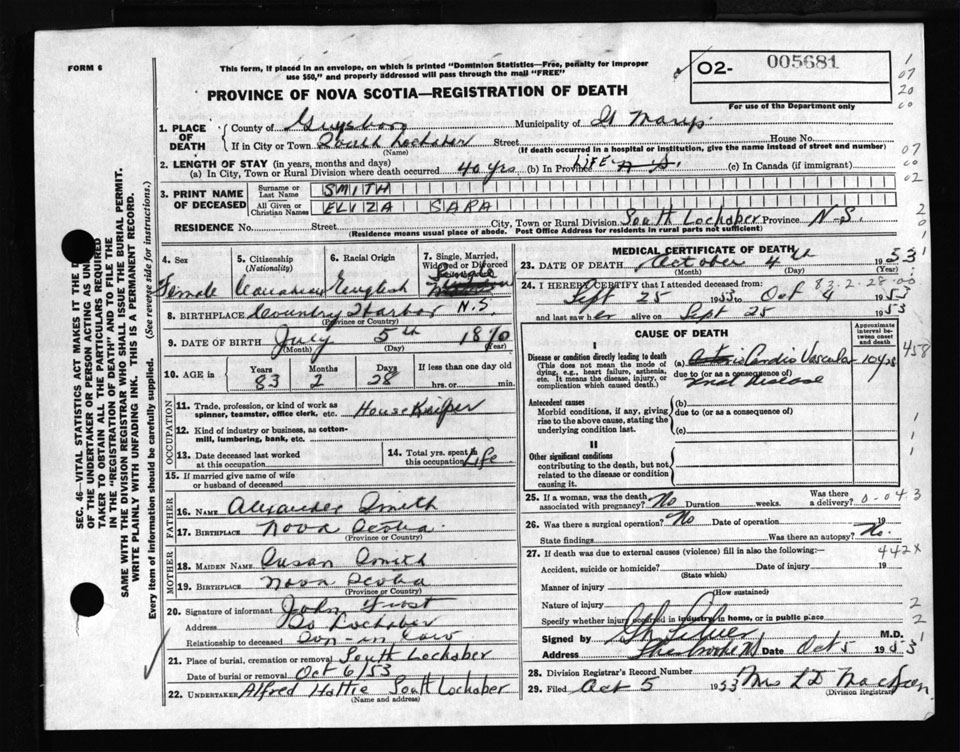 FORM 6
This form, if placed in an envelope, on which is printed "Dominion Statistics—Free, penalty for improper
use $50," and properly addressed will pass through the mail "FREE"
O2- 005681
For use of the Department only
PROVINCE OF NOVA SCOTIA—REGISTRATION OF DEATH
1. PLACE OF DEATH
County of Guysboro Municipality of St Marys
If in City or Town South Lochaber Street House No.
(Name) (If death occurred in a hospital or institution, give the name instead of street and number)
2. LENGTH OF STAY (in years, months and days)
(a) In City, Town or Rural Division where death occurred 40 yrs (b) In Province LIFE N S. (c) In Canada (if immigrant)
3. PRINT NAME OF DECEASED
Surname or Last Name SMITH
All Given or Christian Names ELVIZA SARA
RESIDENCE No. Street City, Town or Rural Division South Lochaber Province N-S.
(Residence means usual place of abode. Post Office Address for residents in rural parts not sufficient)
4. Sex
Female
5. Citizenship
(Nationality)
Canadian
6. Racial Origin
English
7. Single, Married, Widowed or Divorced
Single
8. BIRTHPLACE Country Harbor N.S
(Province or Country)
9. DATE OF BIRTH July 5th 1870
(Month) (Day) (Year)
10. AGE in
Years Months Days If less than one day old
83 2 28 hrs. or min.
OCCUPATION
11. Trade, profession, or kind of work as
spinner, teamster, office clerk, etc. House Keeper
12. Kind of industry or business, as cotton-
mill, lumbering, bank, etc.
13. Date deceased last worked
at this occupation
14. Total yrs. spent in
this occupation Life
15. If married give name of wife
or husband of deceased
FATHER
16. NAME Alexander Smith
17. BIRTHPLACE Nova Scotia
(Province or Country)
MOTHER
18. MAIDEN NAME Susan Smith
19. BIRTHPLACE Nova Scotia
(Province or Country)
20. Signature of informant John Frost
Address So Lochaber
Relationship to deceased Son-in law
21. Place of burial, cremation or removal South Lochaber
Date of burial or removal Oct 6/53
22. UNDERTAKER Alfred Hattie South Lochaber
(Name and address)
MEDICAL CERTIFICATE OF DEATH
23. DATE OF DEATH October 4th 1953
(Month) (Day) (Year)
24. I HEREBY CERTIFY that I attended deceased from: 83-2-28
Sept 25 1953 to Oct 4 1953
and last saw her alive on Sept 25 1953
CAUSE OF DEATH
Approximate interval between onset and death
I
Disease or condition directly leading to death
(This does not mean the mode of dying, e.g., heart failure, asthenia, etc. It means the disease, injury, or complication which caused death.)
(a) Cardio Vascular 10 yrs
due to (or as a consequence of)
Renal Disease
458
Antecedent causes
Morbid conditions, if any, giving rise to the above cause, stating the underlying condition last.
(b)
due to (or as a consequence of)
(c)
II
Other significant conditions
contributing to the death, but not related to the disease or condition causing it.
25. If a woman, was the death
associated with pregnancy? No Duration weeks. Was there a delivery? 0-043
26. Was there a surgical operation? No Date of operation 19
State findings Was there an autopsy? No.
27. If death was due to external causes (violence) fill in also the following:— 442X
Accident, suicide or homicide? Date of injury 19
(State which)
Manner of injury
(How sustained)
Nature of injury
Specify whether injury occurred in industry, in home, or in public place
Signed by M.D.
Address Sherbrooke NS Date Oct 5 1953
28. Division Registrar's Record Number
29. Filed Oct 5 1953 Mrs L D
(Division Registrar)
SEC. 46—VITAL STATISTICS ACT MAKES IT THE
OF THE UNDERTAKER OR PERSON ACTING AS
TAKER TO OBTAIN ALL THE PARTICULARS REQUIRED
IN THE "REGISTRATION OF DEATH" AND TO FILE THE
SAME WITH THE DIVISION REGISTRAR WHO SHALL ISSUE THE BURIAL PERMIT.
WRITE PLAINLY WITH UNFADING INK. THIS IS A PERMANENT RECORD.
Every item of information should be carefully supplied. (See reverse side for instructions.)